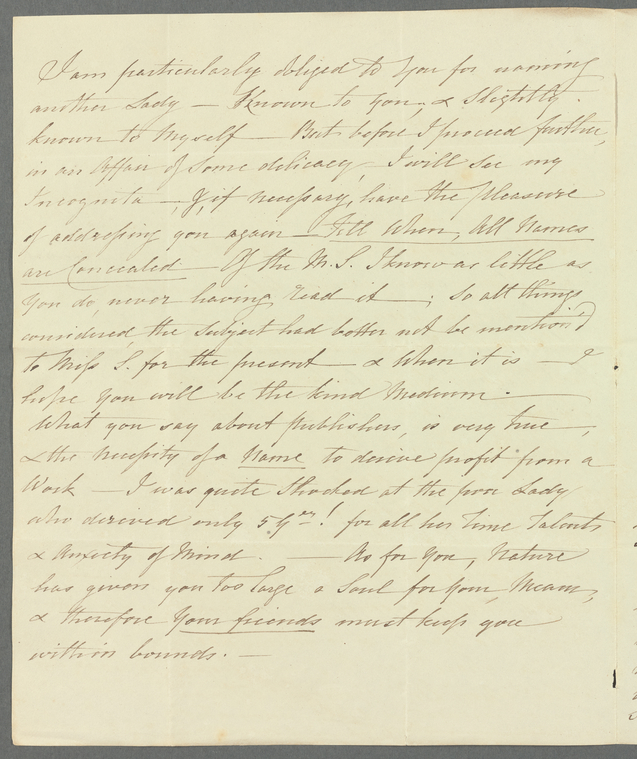 I am particularly obliged to you for naming
another Lady — Known to you, & Slightly
known to Myself — But before I proceed further,
in an Affair of Some delicacy, I will see my
Incognita —, & if necessary, have the pleasure
of addressing you again — Till When, All Names
are Concealed — Of the M.S. I know as little as
you do, never having read it — ; So all things
considered, the Subject had better not be mention'd
to Miss S. for the present — & When it is — I
hope you will be the kind Medium. —
What you say about publishers, is very true —,
& the necessity of a Name to derive profit from a
Work — I was quite Shocked at the poor Lady
who derived only 5 for all her time Talents
& Anxiety of Mind. — As for You, Nature
has given you too large a Soul for your Means,
& therefore your friends must keep you
within bounds. —